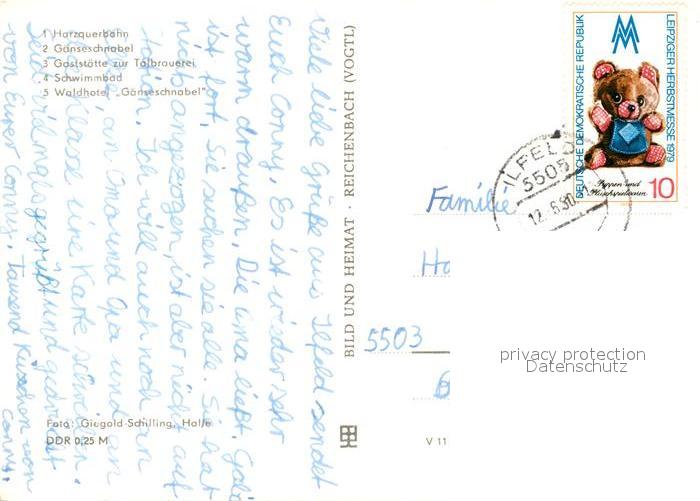 1 Harzquerbahn
2 Gänseschnabel
3 Gaststätte zur Talbrauerei
4 Schwimmbad
5 Waldhotel „Gänseschnabel"
Viele liebe Grüße aus Ilfeld sendet
Euch Conny. Es ist wieder sehr
warm draußen. Die Oma liegt. Gabi
ist fort, Sie suchen sie alle. Sie hat
nichts angezogen, ist aber nicht auf
ihrem. Ich will auch noch an
an Oma und Opa und an
Klasse eine Karte schreiben.
Seid vielmals gegrüßt und gedrückt
von Eurer Conny. Tausend Küsschen von
Conny.
Foto: Giegold-Schilling, Halle
DDR 0,25 M
BILD UND HEIMAT REICHENBACH (VOGTL)
V 11
DEUTSCHE DEMOKRATISCHE REPUBLIK
LEIPZIGER HERBSTMESSE 1979
Puppen und
Plüschspielwaren
10
ILFELD
5505
12.6.80
Familie
Ho
5503
privacy protection
Datenschutz